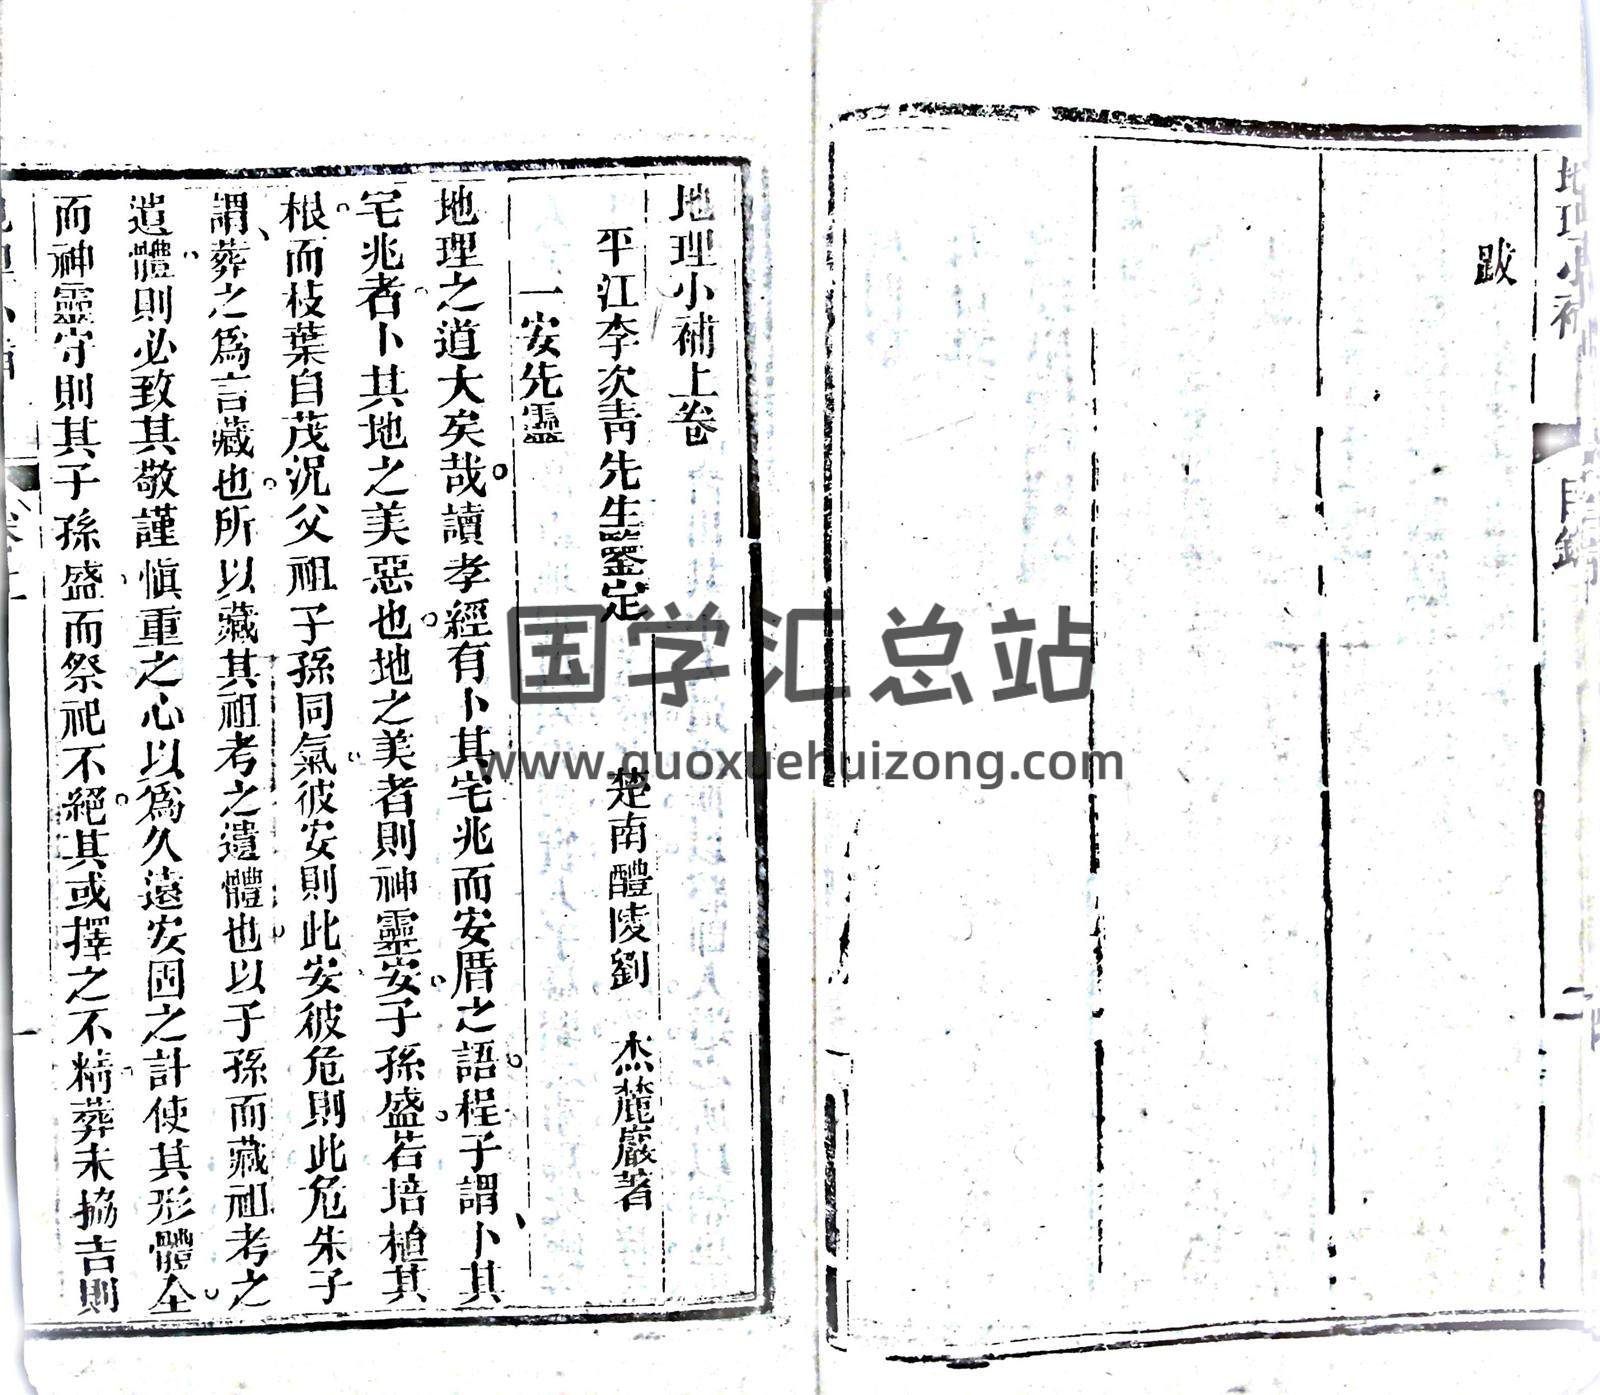 地理小補
目錄
二
跋
地理小補上卷
平江李次青先生鑒定
楚南醴陵劉　杰蔍巖著
一安先靈
地理之道大矣哉。讀孝經有卜其宅兆而安厝之語。程子謂、卜其
宅兆者。卜其地之美惡也。地之美者則神靈安。子孫盛。若培植其
根。而枝葉自茂。況父祖子孫同氣。彼安則此安。彼危則此危。朱子
謂、葬之爲言藏也。所以藏其祖考之遺體也。以子孫而藏祖考之
遺體。則必致其敬謹愼重之心。以爲久遠安固之計。使其形體全。
而神靈守。則其子孫盛。而祭祀不絕。其或擇之不精。葬未協吉。則
國学汇总站
www.guoxuehuizong.com